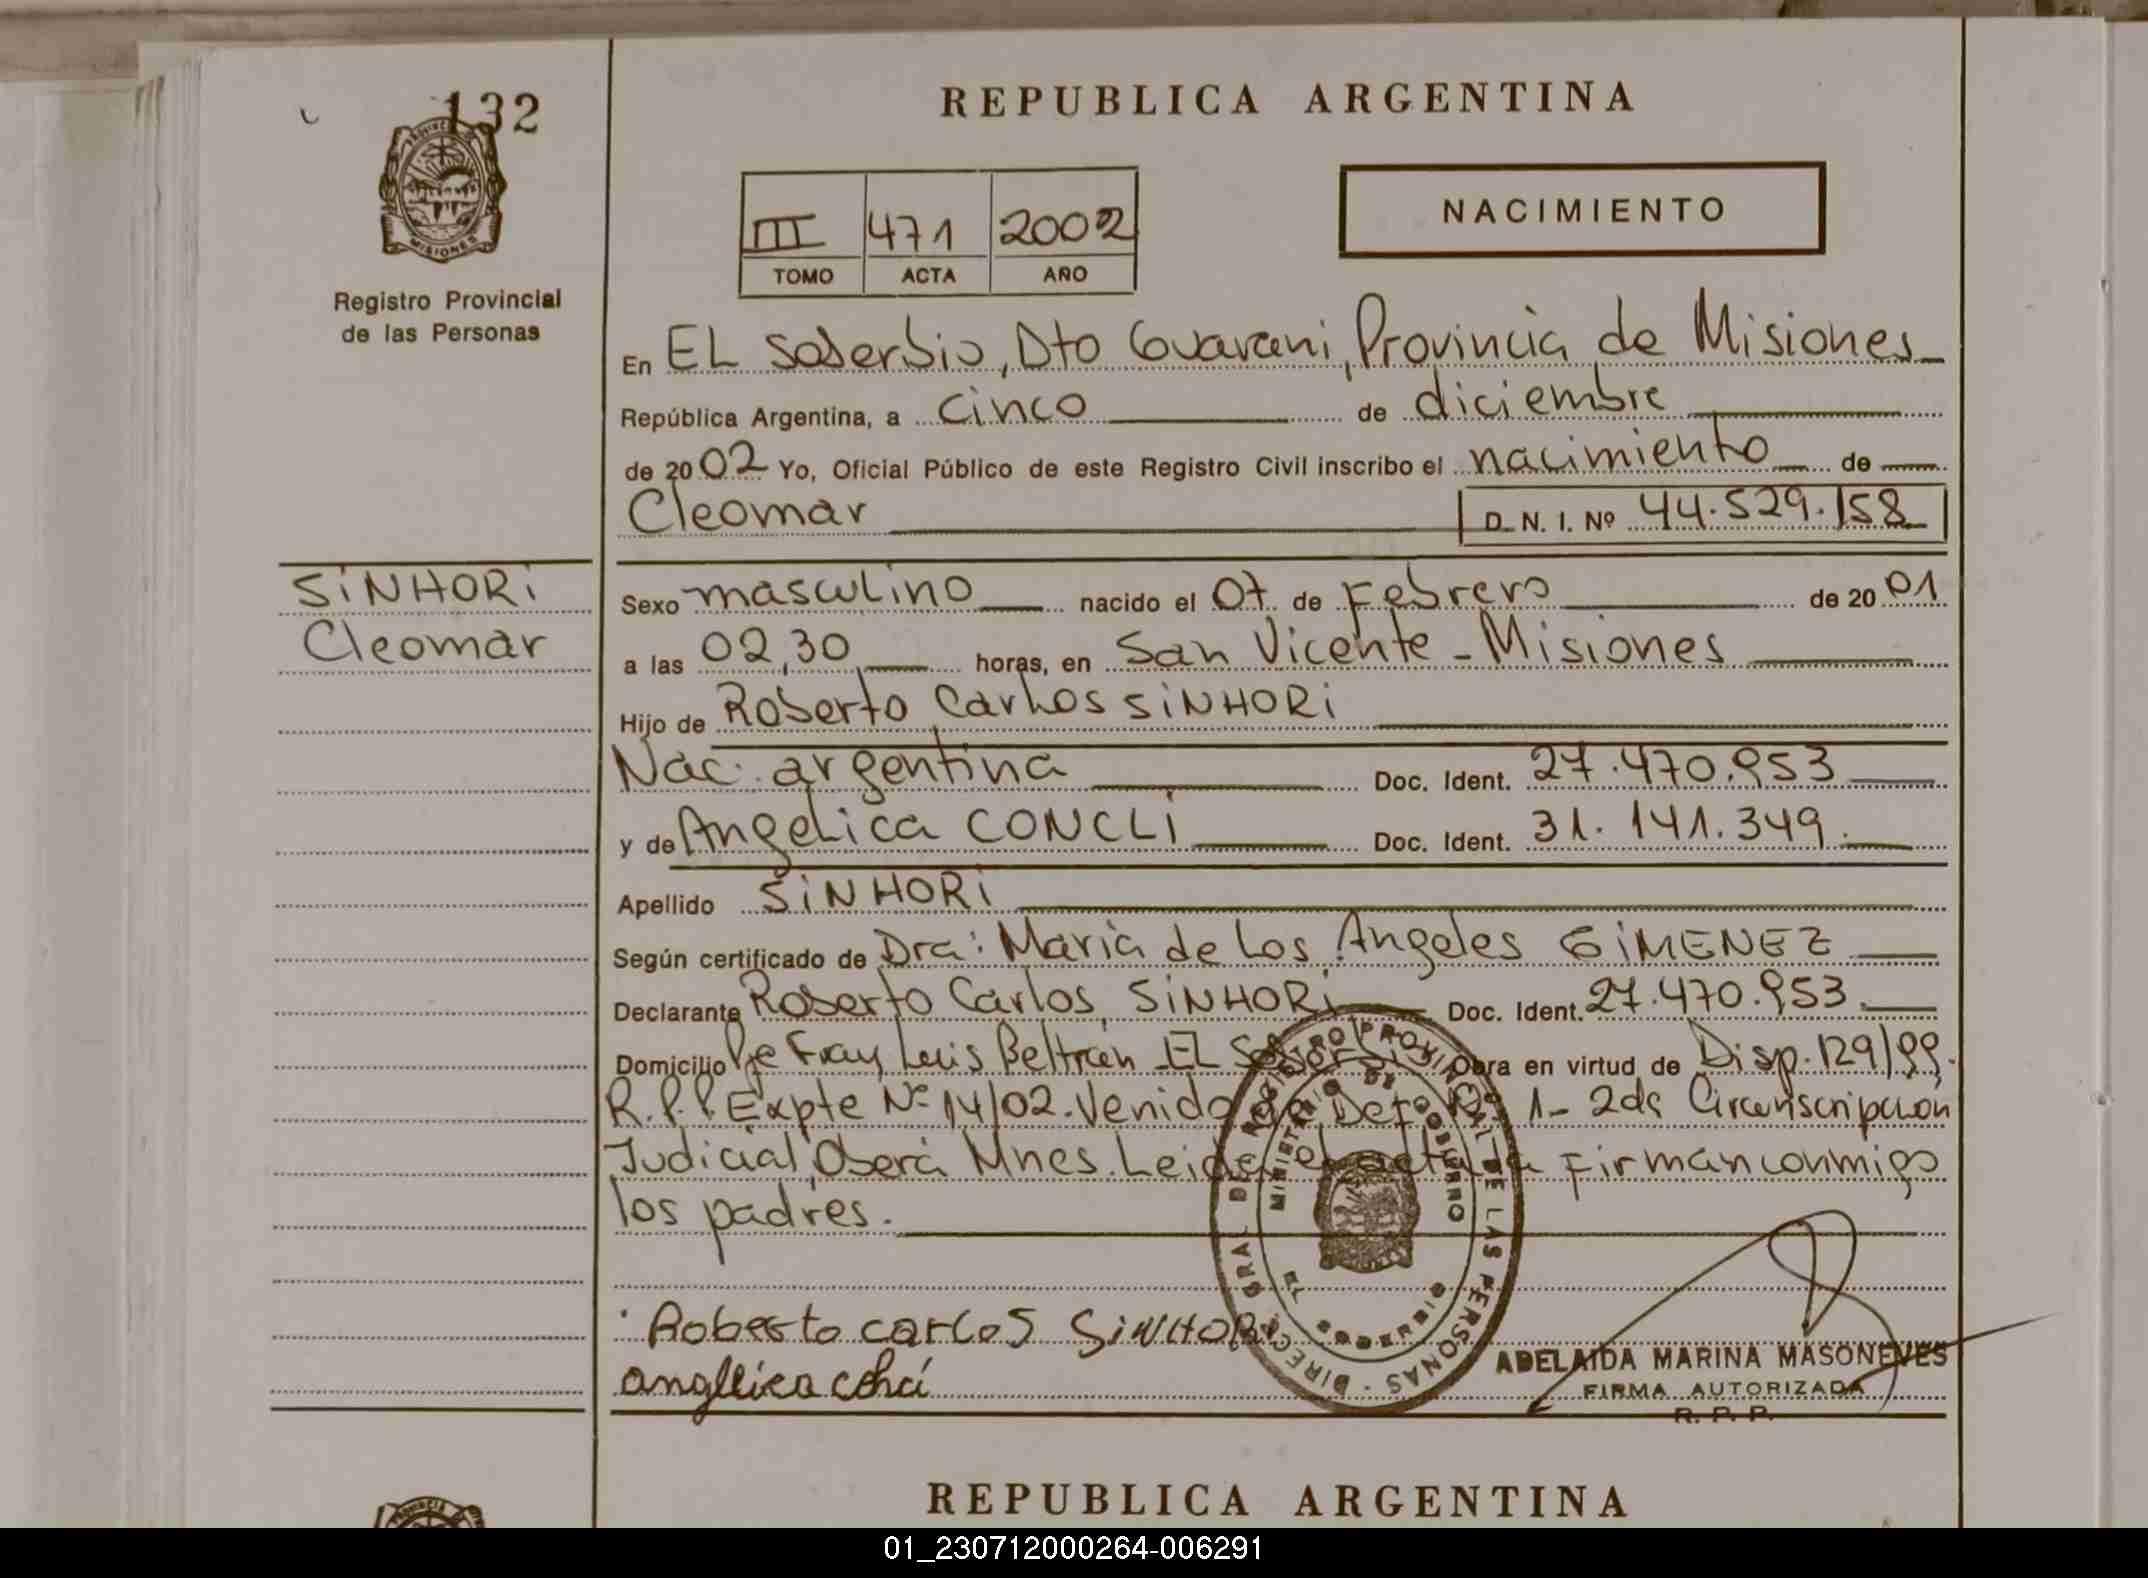 132
PROVINCIA DE
MISIONES
Registro Provincial
de las Personas
REPUBLICA ARGENTINA
III 471 2002
TOMO ACTA AÑO
NACIMIENTO
En EL Soberbio, Dto Guarani, Provincia de Misiones
República Argentina, a cinco de diciembre
de 2002 Yo, Oficial Público de este Registro Civil inscribo el nacimiento de
Cleomar D. N. I. Nº 44.529.158
SiNHORi
Cleomar
Sexo masculino nacido el 07 de Febrero de 2001
a las 02,30 horas, en San Vicente - Misiones
Hijo de Roberto Carlos SiNHORi
Nac. argentina Doc. Ident. 27.470.953
y de Angelica CONCLi Doc. Ident. 31.141.349.
Apellido SiNHORi
Según certificado de Dra: Maria de Los Angeles GiMENEZ
Declarante Roberto Carlos, SiNHORi Doc. Ident. 27.470.953.
Domicilio Pje Fray Luis Beltran EL Soberbio Obra en virtud de Disp. 129/99.
R.P.P. Expte Nº 14/02. Venido de Def Nº 1- 2da Circunscripcion
Judicial Oberá Mnes. Leida el acta la Firman conmigo
los padres.
Roberto carlos SiNHORi
angelica
DIRECC. GRAL DEL REGISTRO PROVINCIAL DE LAS PERSONAS
MINISTERIO DE GOBIERNO
EL SOBERBIO
ADELAIDA MARINA MASONEVES
FIRMA AUTORIZADA
R. P. P.
REPUBLICA ARGENTINA
01_230712000264-006291